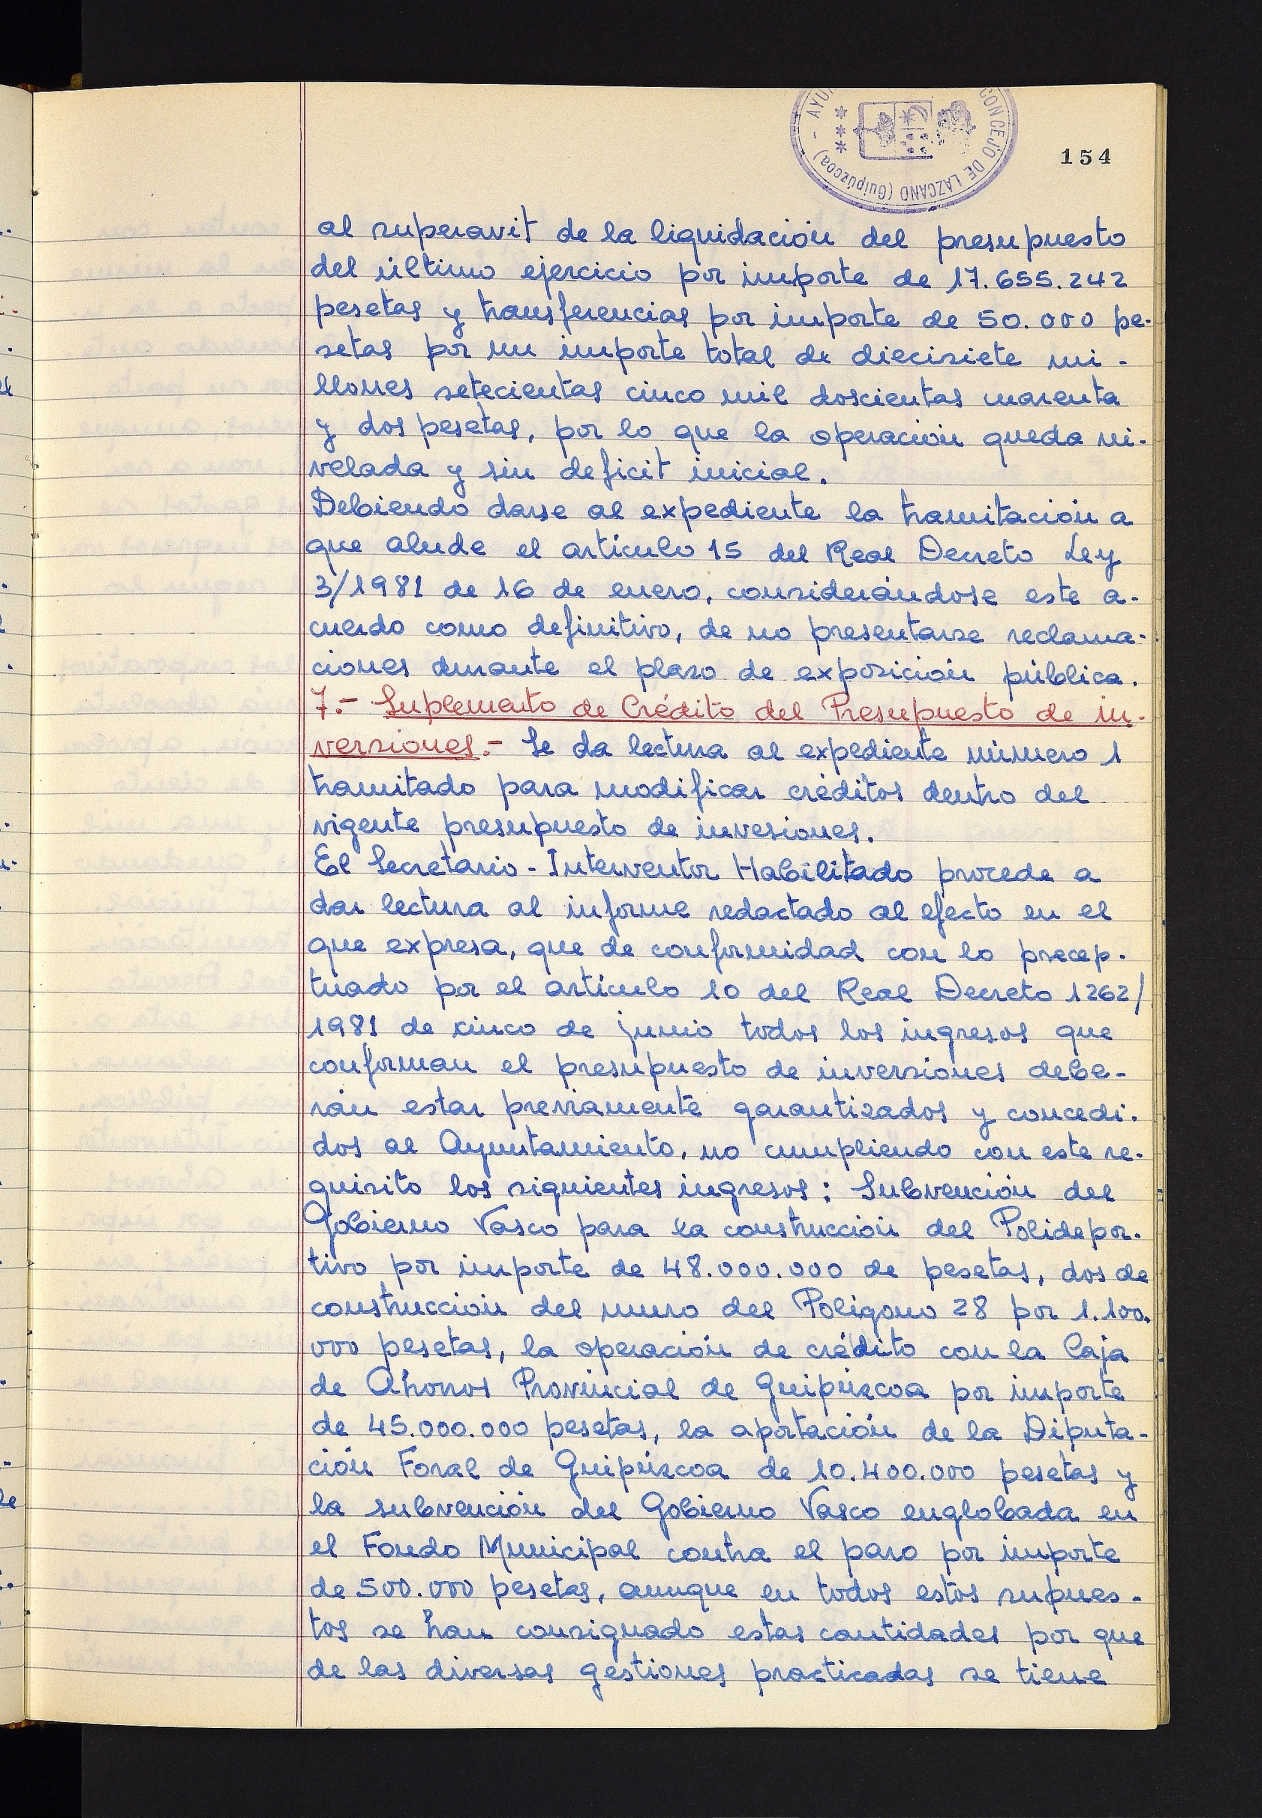 AYU CONCEJO DE LAZCANO (Guipúzcoa) -
154
al superavit de la liquidación del presupuesto
del último ejercicio por importe de 17.655.242
pesetas y transferencias por importe de 50.000 pe-
setas por un importe total de diecisiete mi-
llones setecientas cinco mil doscientas cuarenta
y dos pesetas, por lo que la operación queda ni-
velada y sin deficit inicial.
Debiendo darse al expediente la tramitación a
que alude el artículo 15 del Real Decreto Ley
3/1981 de 16 de enero, considerándose este a-
cuerdo como definitivo, de no presentarse reclama-
ciones durante el plazo de exposición pública.
7.- Suplemento de Crédito del Presupuesto de in-
versiones.- Se da lectura al expediente número 1
tramitado para modificar créditos dentro del
vigente presupuesto de invesiones.
El Secretario-Interventor Habilitado procede a
dar lectura al informe redactado al efecto en el
que expresa, que de conformidad con lo precep-
tuado por el artículo 10 del Real Decreto 1262/
1981 de cinco de junio todos los ingresos que
conforman el presupuesto de inversiones debe-
rán estar previamente garantizados y concedi-
dos al Ayuntamiento, no cumpliendo con este re-
quisito los siguientes ingresos: Subvención del
Gobierno Vasco para la construcción del Polidepor-
tivo por importe de 48.000.000 de pesetas, dos de
construcción del muro del Poligono 28 por 1.100.
000 pesetas, la operación de crédito con la Caja
de Ahorros Provincial de Guipúzcoa por importe
de 45.000.000 pesetas, la aportación de la Diputa-
ción Foral de Guipúzcoa de 10.400.000 pesetas y
la subvención del Gobierno Vasco englobada en
el Fondo Municipal contra el paro por importe
de 500.000 pesetas, aunque en todos estos supues-
tos se han consignado estas cantidades por que
de las diversas gestiones practicadas se tiene